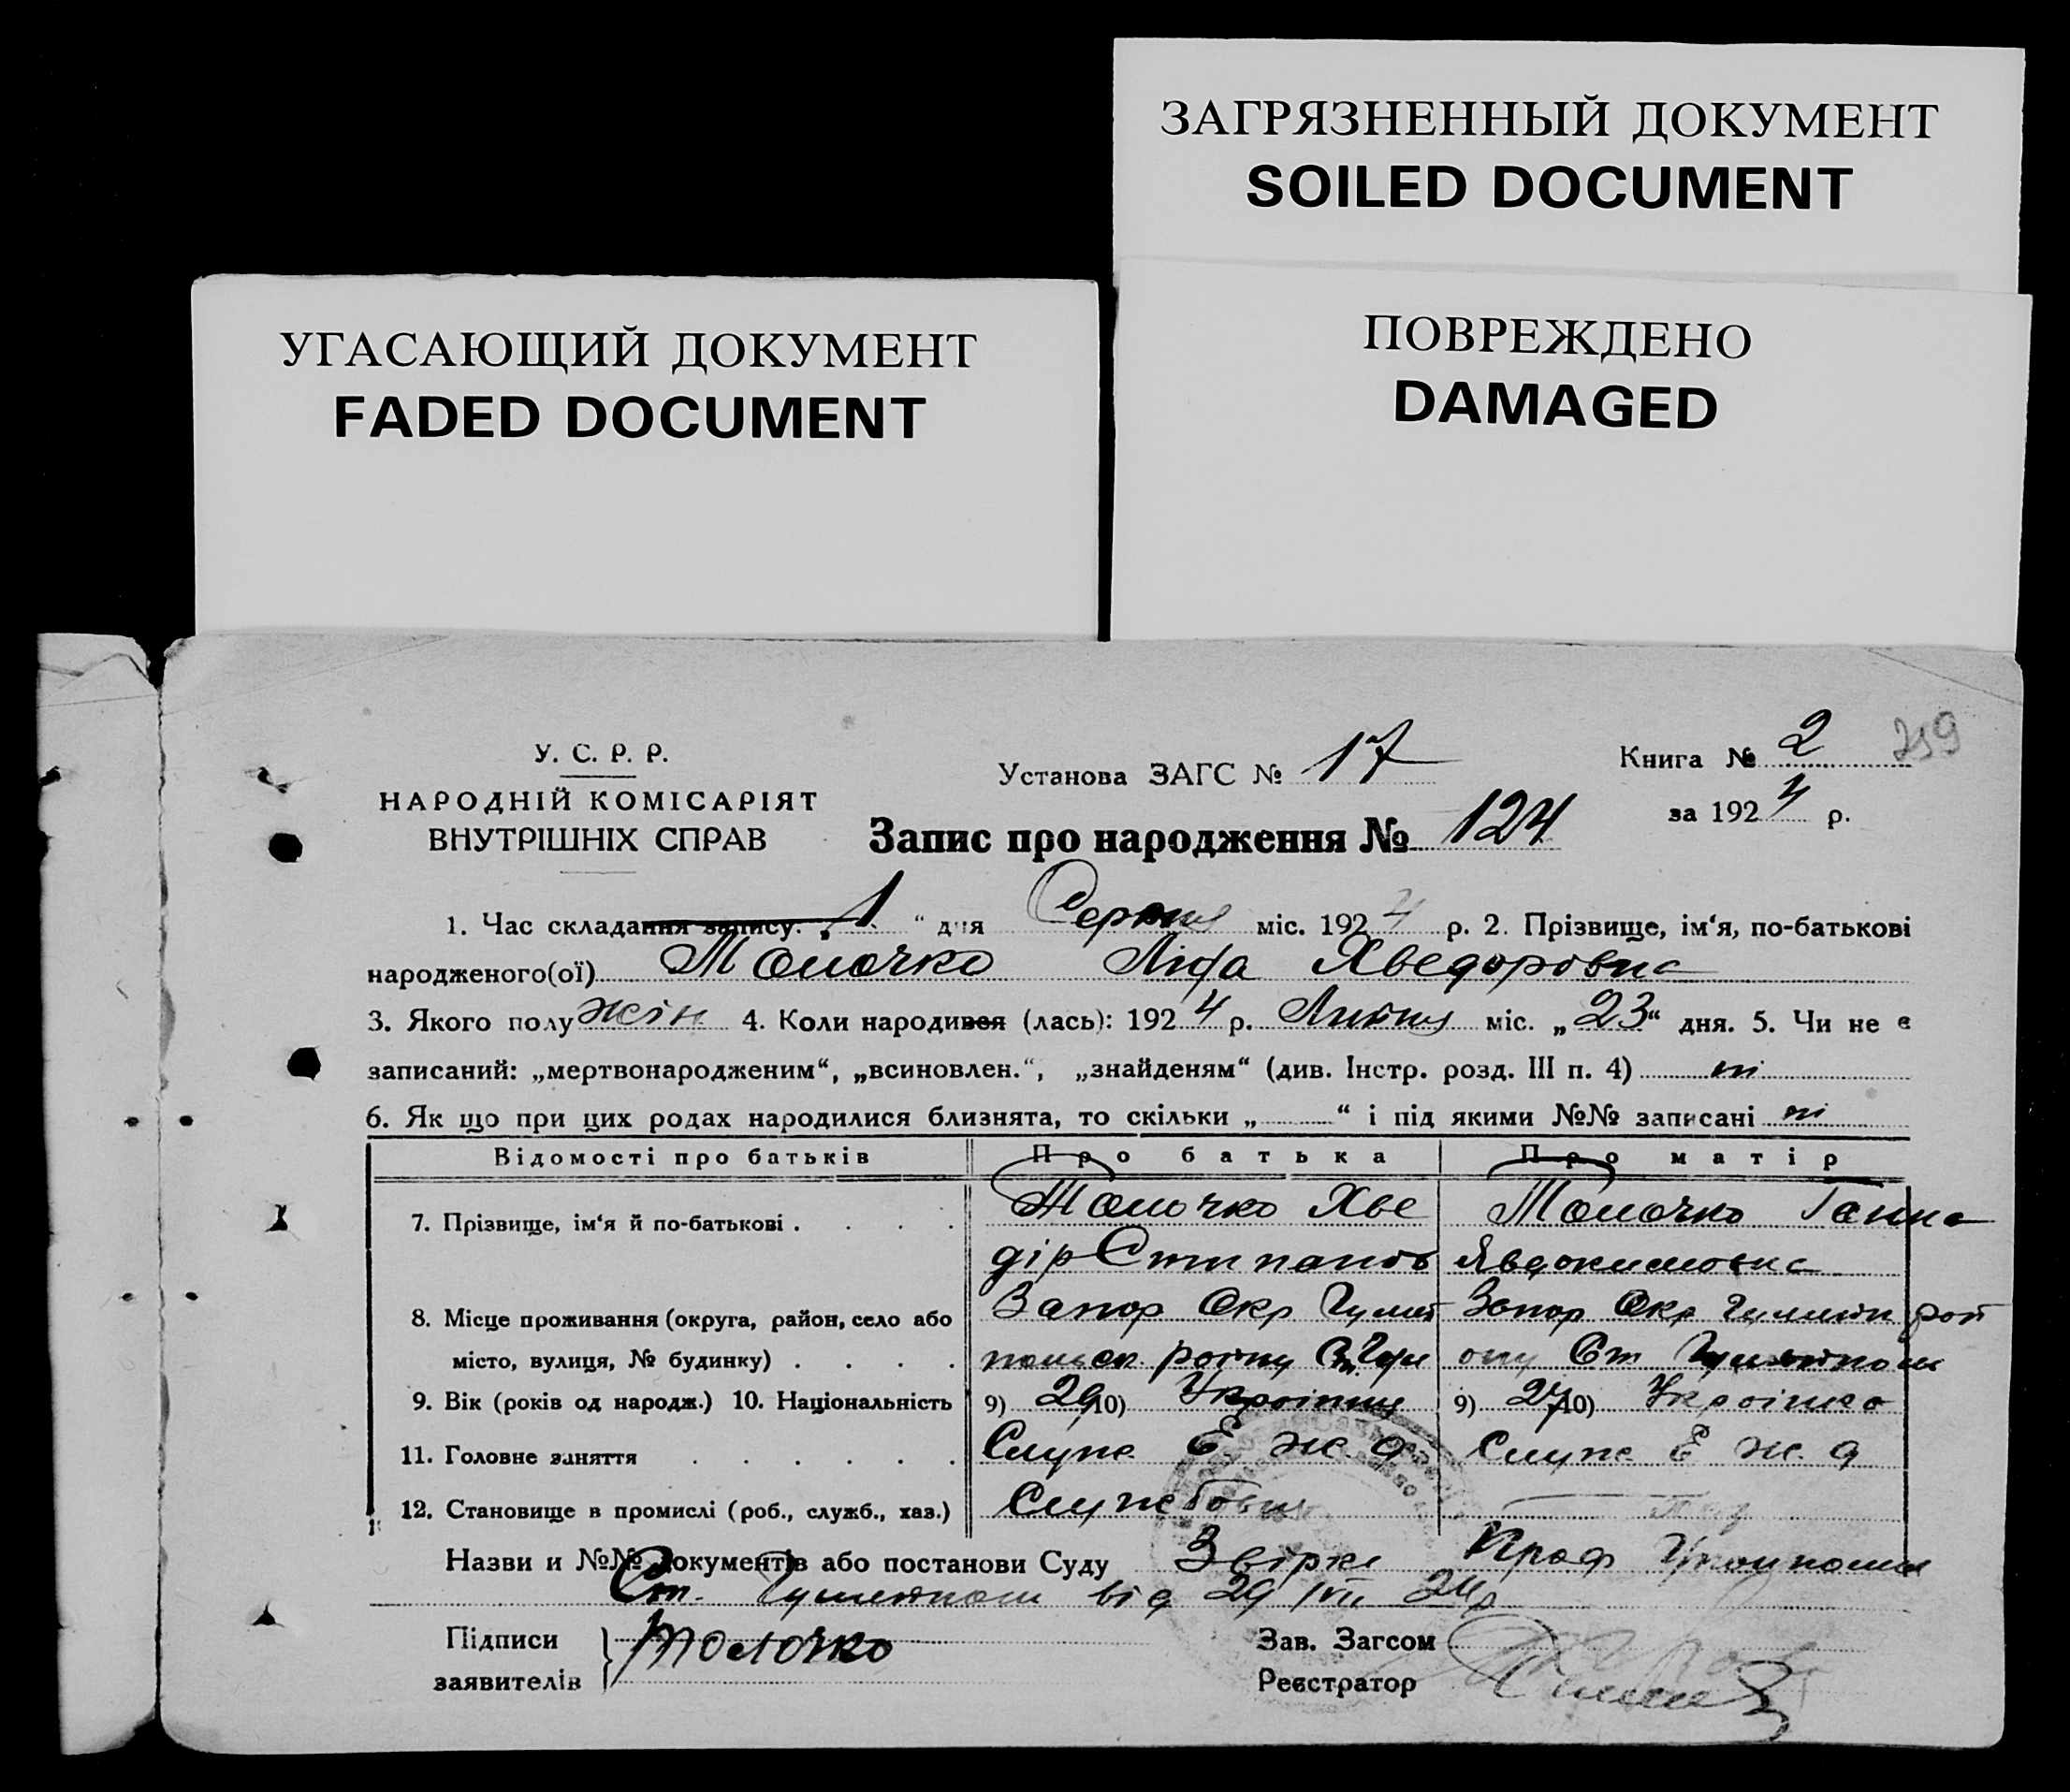 ЗАГРЯЗНЕННЫЙ ДОКУМЕНТ
SOILED DOCUMENT
УГАСАЮЩИЙ ДОКУМЕНТ
FADED DOCUMENT
ПОВРЕЖДЕНО
DAMAGED
У. С. Р. Р.
НАРОДНІЙ КОМІСАРІЯТ
ВНУТРІШНІХ СПРАВ
Установа ЗАГС № 17
Книга № 2 259
за 1924 р.
Запис про народження № 124
1. Час складання запису: „1“ дня Серпня міс. 1924 р. 2. Прізвище, ім‘я, по-батькові
народженого(ої) Толочко Ліда Хведоровна
3. Якого полу жін 4. Коли народився (лась): 1924 р. Липня міс. „23“ дня. 5. Чи не є
записаний: „мертвонародженим“, „всиновлен.“, „знайденям“ (див. Інстр. розд. III п. 4) ні
6. Як що при цих родах народилися близнята, то скільки „ “ і під якими №№ записані ні
Відомості про батьків Про батька Про матір
7. Прізвище, ім‘я й по-батькові . . . . Толочко Хве Толочко Ганна
дір Степанов Явдокимовна
8. Місце проживання (округа, район, село або Запор Окр Запор Окр
місто, вулиця, № будинку) . . . . району Ст
9. Вік (років од народж.) 10. Національність 9) 29 10) Українец 9) 27 10) Українка
11. Головне заняття . . . . . . Служ Е ж. д Служ Е ж. д
12. Становище в промислі (роб., служб., хаз.) Службовец
Назви и №№ документів або постанови Суду
Ст. від 29/VII 24р
Підписи Толочко Зав. Загсом
заявителів Реєстратор